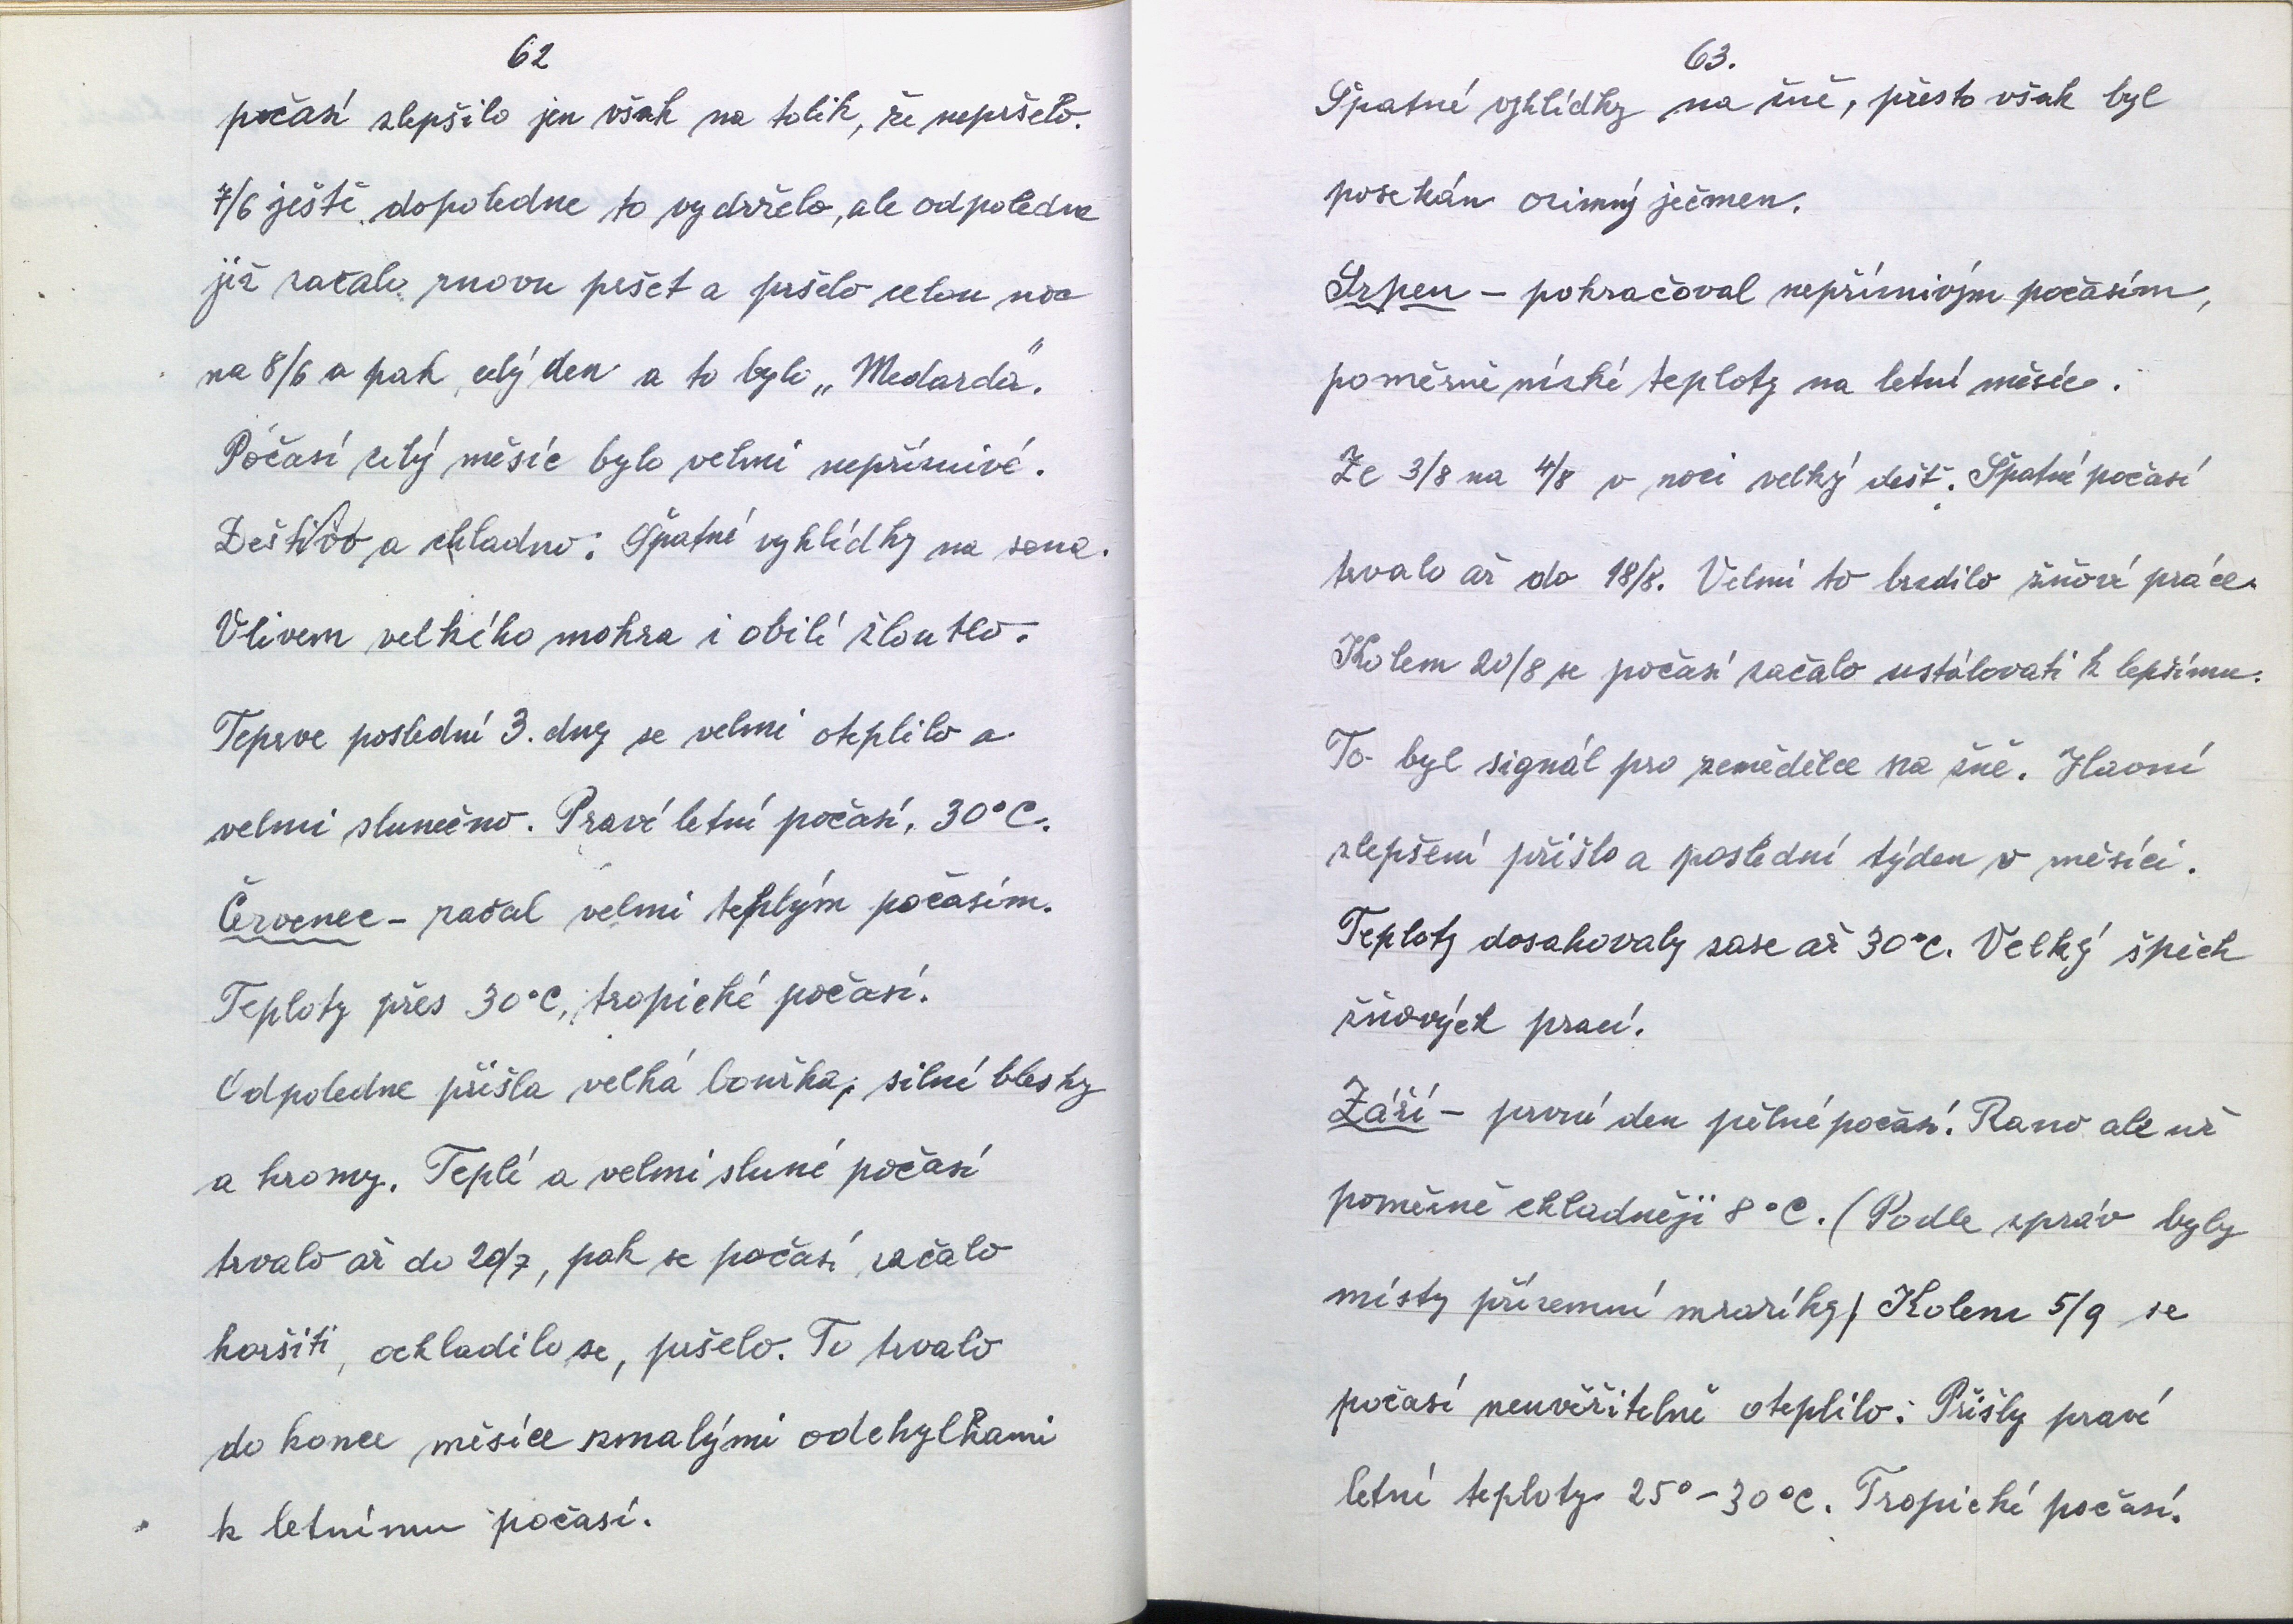 62
počasí zlepšilo jen však na tolik, že nepršelo.
7/6 ještě dopoledne to vydrželo, ale odpoledne
již začalo znovu pršet a pršelo celou noc
na 8/6 a pak celý den a to bylo „Medarda".
Počasí celý měsíc bylo velmi nepříznivé.
Deštivo a chladno. Špatné vyhlídky na sena.
Vlivem velkého mokra i obilí žloutlo.
Teprve poslední 3. dny se velmi oteplilo a
velmi slunečno. Pravé letní počasí, 30°C.
Červenec - začal velmi teplým počasím.
Teploty přes 30°C, tropické počasí.
Odpoledne přišla velká bouřka, silné blesky
a hromy. Teplé a velmi sluné počasí
trvalo až do 20/7, pak se počasí začalo
horšiti, ochladilo se, pršelo. To trvalo
do konce měsíce smalými odchylkami
k letnímu počasí.
63.
Špatné vyhlídky na žně, přesto však byl
posekán ozimný ječmen.
Srpen - pokračoval nepříznivým počasím,
poměrně nízké teploty na letní měsíc.
Ze 3/8 na 4/8 v noci velký déšť. Špatné počasí
trvalo až do 18/8. Velmi to brzdilo žňové práce.
Kolem 20/8 se počasí začalo ustálovati k lepšímu.
To byl signál pro zemědělce na žně. Hlavní
zlepšení přišlo a poslední týden v měsíci.
Teploty dosahovaly zase až 30°C. Velký špěch
žňových prací.
Září - první den pěkné počasí. Rano ale už
poměrně chladněji 8°C. (Podle zpráv byly
místy přízemní mrazíky) Kolem 5/9 se
počasí neuvěřitelně oteplilo. Přišly pravé
letní teploty 25° - 30°C. Tropické počasí.